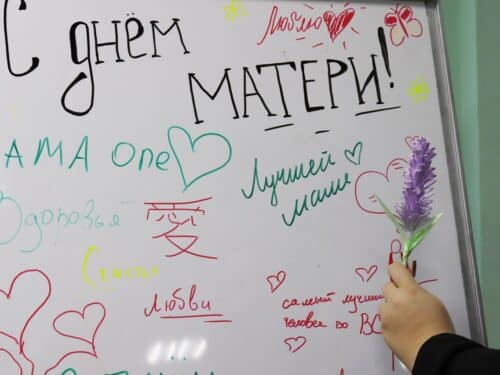 С днём
МАТЕРИ!
Люблю
МАМА one
Лучшей
маме
Здоровья
愛
Счастья
Любви
самый лучший
человек во ВС